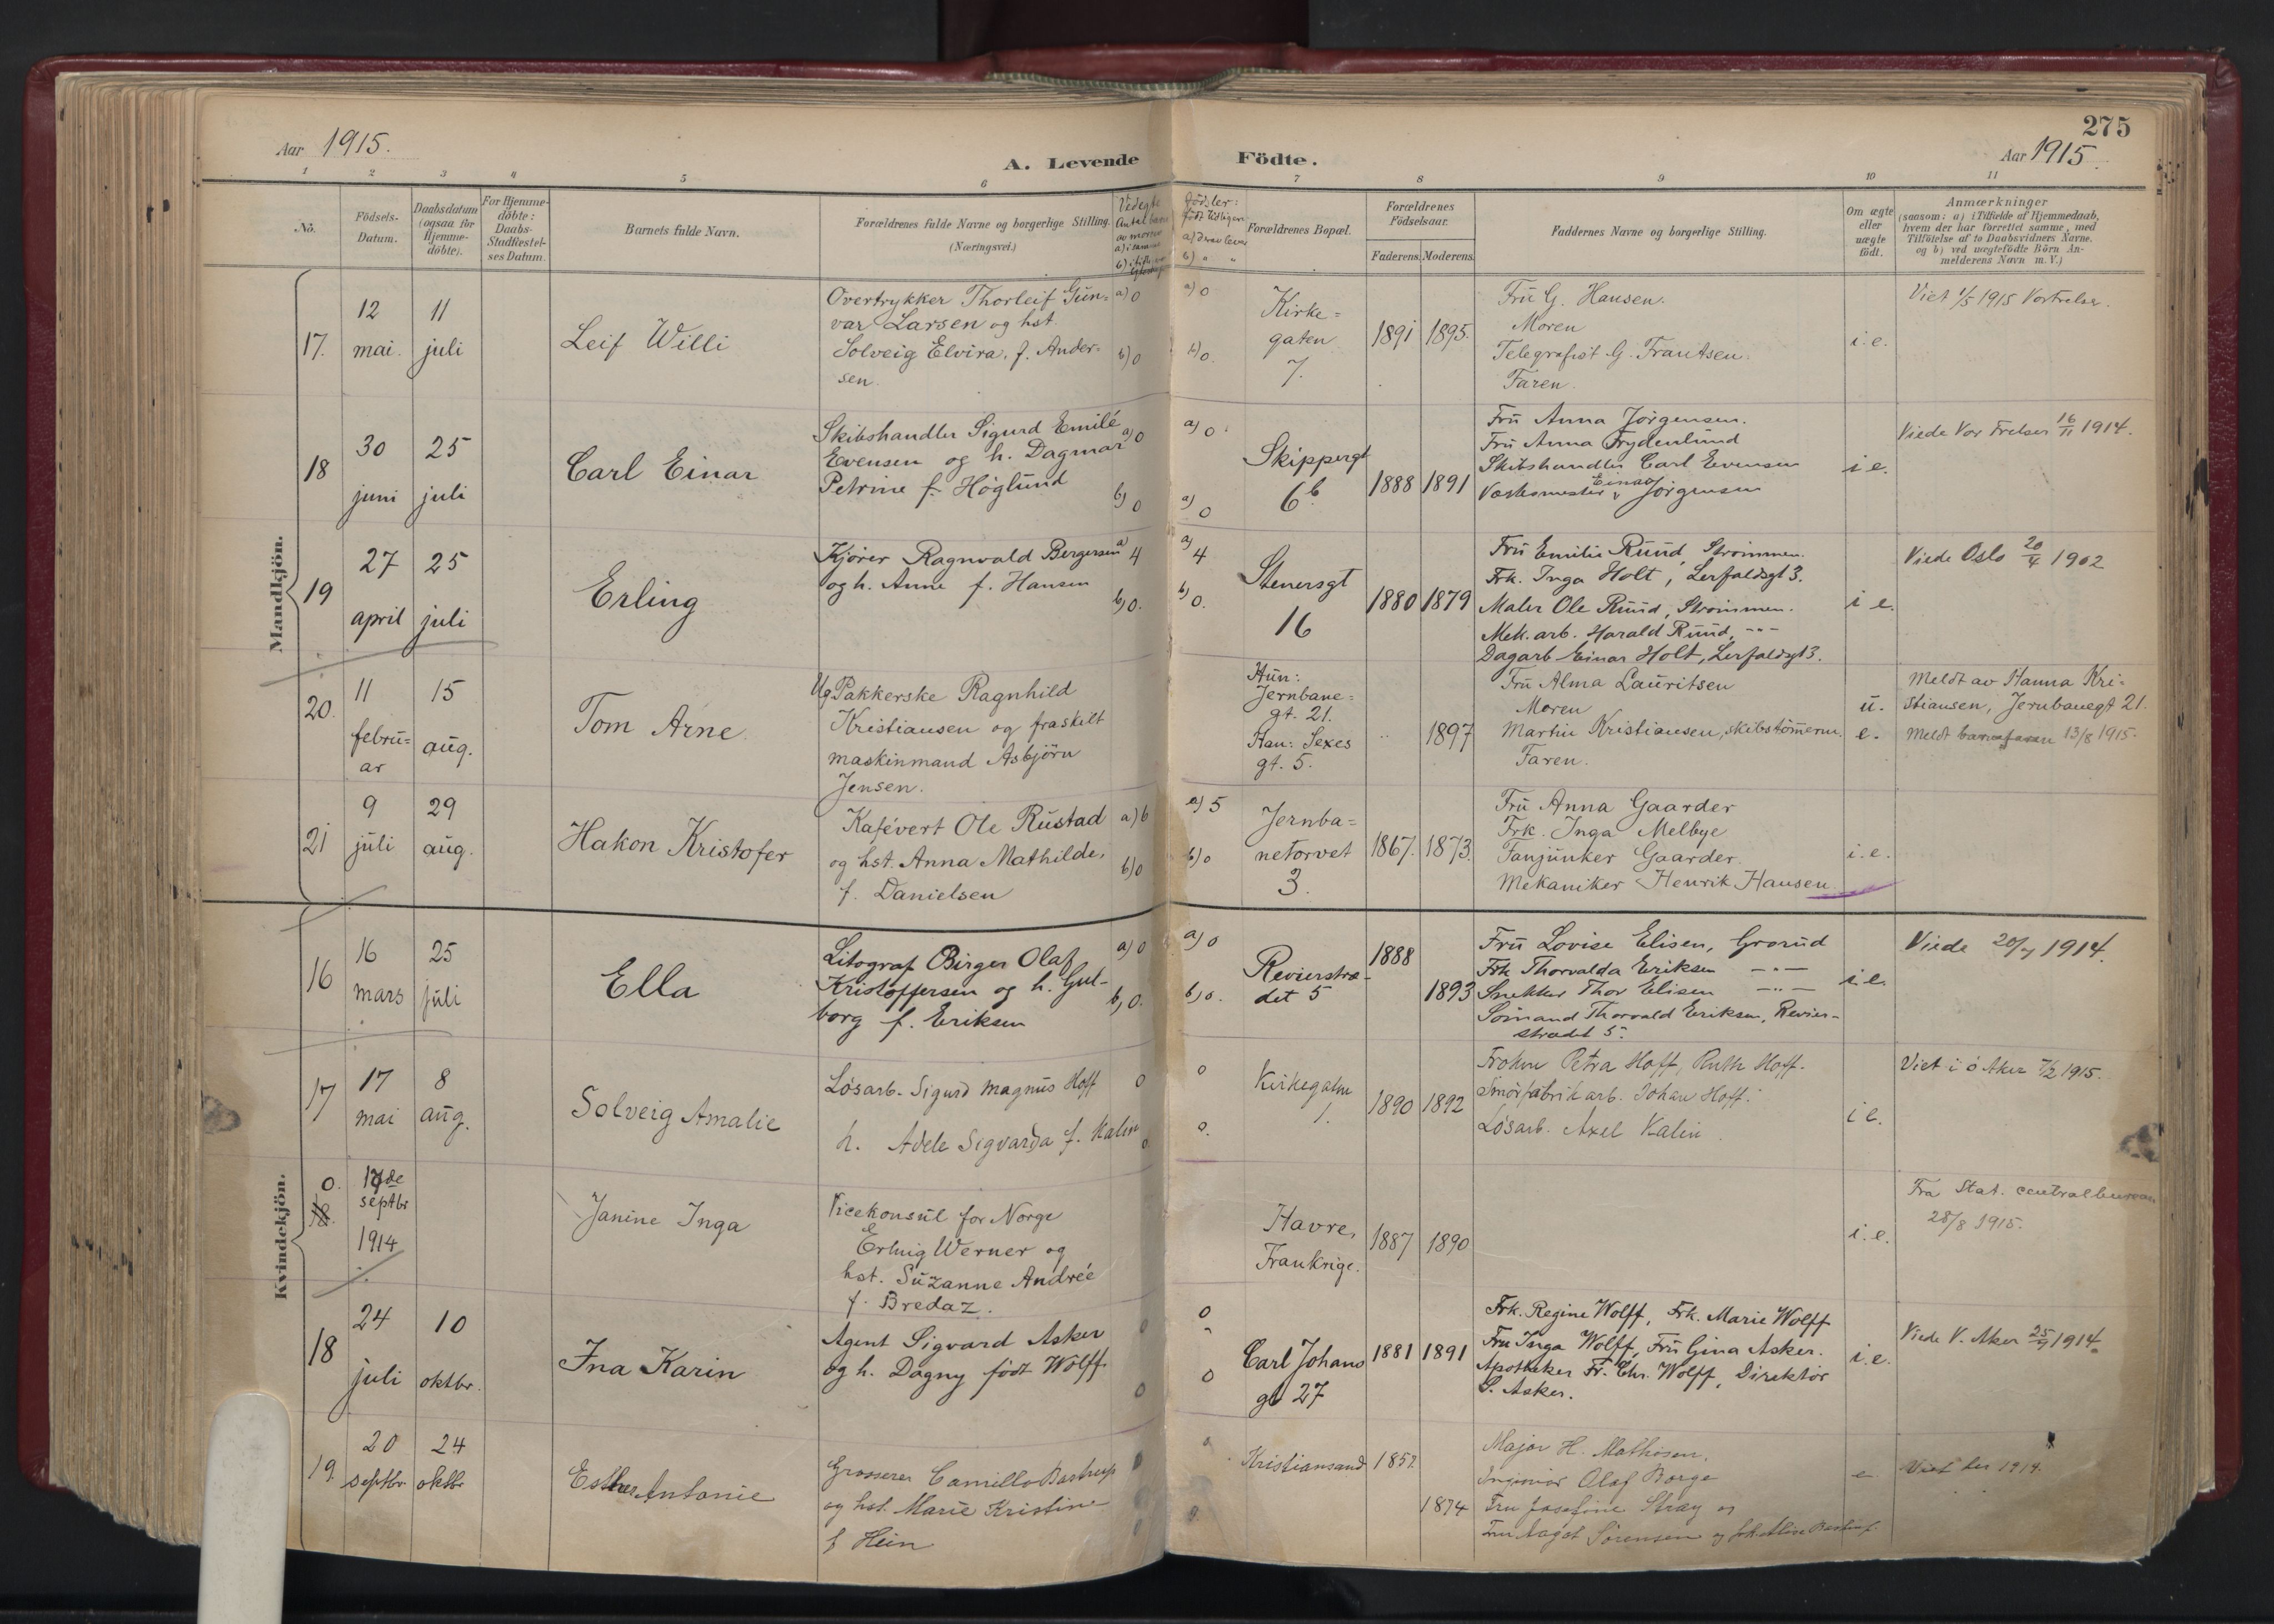 275
Aar 1915.
A. Levende Födte.
Aar 1915.
1 2 3 4 5 6 7 8 9 10 11
No.
Födsels-
Datum.
Daabsdatum
(ogsaa for
Hjemme-
döbte).
For Hjemme-
döbte:
Daabs-
Stadfæstel-
ses Datum.
Barnets fulde Navn.
Forældrenes fulde Navne og borgerlige Stilling.
(Næringsvei.)
Forældrenes Bopæl.
Forældrenes
Födselsaar.
Faderens. Moderens.
Faddernes Navne og borgerlige Stilling.
Om ægte
eller
uægte
födt.
Anmærkninger
(saasom: a) i Tilfælde af Hjemmedaab,
hvem der har forrettet samme, med
Tilföielse af to Daabsvidners Navne,
og b) ved uægtefödte Börn An-
melderens Navn m. V.)
Mandkjön.
17.
12
mai.
11
juli
Leif Willi
Overtrykker Thorleif Gun-
var Larsen og hst.
Solveig Elvira, f. Ander-
sen.
a) 0
b) 0
a) 0
b) 0.
Kirke-
gaten
7.
1891 1895.
Fru G. Hansen.
Moren
Telegrafist G. Frantsen.
Faren.
i. e.
Viet 1/5 1915 Vorfrelser.
18
30
juni
25
juli
Carl Einar
Skibshandler Sigurd Emil
Evensen og h. Dagmar
Petrine f. Höglund
a) 0
b) 0
a) 0
a) 0
Skippergt
6b.
1888 1891
Fru Anna Jörgensen.
Fru Anna Frydenlund
Skibshandler Carl Evensen
Værksmester Einar Jörgensen
i e.
Viede Vor Frelser 16/11 1914.
19
27
april
25
juli
Erling
Kjörer Ragnvald Bergersen
og h. Anne f. Hansen
a) 4
b) 0.
a) 4
b) 0.
Stenersgt
16
1880 1879
Fru Emilie Ruud, Strömmen.
Frk. Inga Holt, Lerfaldsgt 3.
Maler Ole Ruud, Strömmen.
Mek. arb. Harald Ruud, -"-
Dagarb Einar Holt, Lerfaldsgt 3.
i e.
Viede Oslo 20/4 1902
20.
11
febru-
ar
15
aug.
Tom Arne
Ug. Pakkerske Ragnhild
Kristiansen og fraskilt
maskinmand Asbjörn
Jensen.
Hun:
Jernbane-
gt. 21.
Han: Sexes
gt. 5.
1897
Fru Alma Lauritsen
Moren
Martin Kristiansen, skibstömerm.
Faren.
u.
e.
Meldt av Hanna Kri-
stiansen, Jernbanegt 21.
Meldt barnefaren 13/8 1915.
21
9
juli
29
aug.
Hakon Kristofer
Kafévert Ole Rustad
og hst. Anna Mathilde,
f. Danielsen
a) 6
b) 0
a) 5
b) 0
Jernba-
netorvet
3.
1867. 1873.
Fru Anna Gaarder
Frk. Inga Melbye
Fanjunker Gaarder.
Mekaniker Henrik Hansen.
i. e.
Kvindekjön.
16
16
mars
25
juli
Ella
Litograf Birger Olaf
Kristoffersen og h. Gul-
borg f. Eriksen
a) 0
b) 0.
a) 0
b) 0.
Revierstræ-
det 5
1888
1893
Fru Lovise Elisen, Grorud
Frk Thorvalda Eriksen -"-
Snekker Thor Elisen -"-
Sömand Thorvald Eriksen, Revier-
strædt 5.
i. e.
Viede 20/7 1914.
17
17
mai
8
aug.
Solveig Amalie
Lösarb. Sigurd Magnus Hoff
h. Adele Sigvarda f. Kalin
0
0
0
0.
Kirkegaten
1.
1890 1892
Froken Petra Hoff, Ruth Hoff.
Smörfabrik arb. Johan Hoff.
Lösarb. Axel Kalin
i e.
Viet i ö Aker 7/2 1915.
0.
18.
17de
septbr
1914
Janine Inga
Vicekonsul for Norge
Erling Werner og
hst. Suzanne Andrée
f. Bredaz.
Havre,
Frankrige.
1887 1890
i. e.
Fra Stat. centralbureau
28/8 1915.
18
24
juli
10
oktbr.
Ina Karin
Agent Sigvard Asker
og h. Dagny född Wolff.
0
0
0
0
Carl Johans
gt 27
1881 1891
Frk. Regine Wolff, Frk. Marie Wolff
Fru Inga Wolff, Fru Gina Asker.
Apotheker Fr. Chr. Wolff, Direktör
S. Asker.
i. e.
Viede V. Aker 25/9 1914.
19.
20
septbr
24
oktbr
Esther Antonie
Grosserer Camillo Bastrup
og hst. Marie Kristine
f Hein
Kristiansand
1852
1874
Major H. Mathisen.
Ingeniör Olaf Borge
Fru Josefine Stray og
Fru Aagot Sörensen og
e
Viet her 1914.